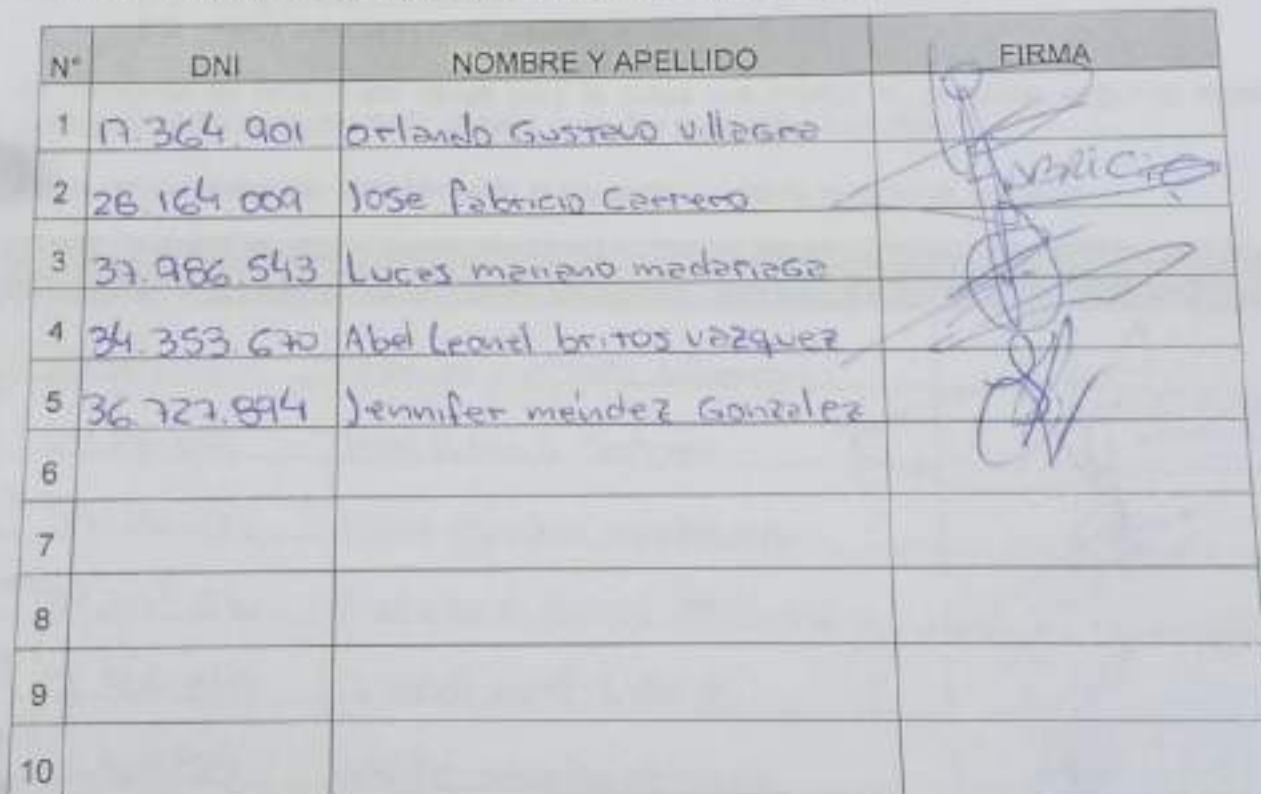 N° DNI NOMBRE Y APELLIDO FIRMA
1 17.364.901 Orlando Gustavo Villagra
2 26 164 009 Jose fabricio Carrero
3 37.986.543 Lucas mariano madariaga
4 34.353.670 Abel Leonel britos vazquez
5 36.727.894 Jennifer mendez Gonzalez
6
7
8
9
10